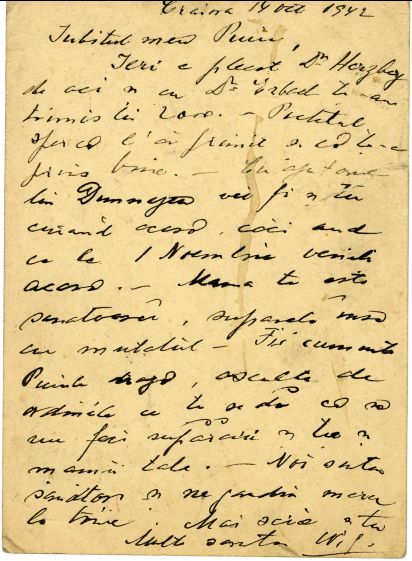 Craiova 14 oct 1942
Iubitul meu Puiu,
Ieri a plecat Dr Herzberg
de aci și cu Dr
trimis lei 2000. — Pachetul
sper că l'ai primit și că te-a
prins bine. — Cu ajutorul
lui Dumnezeu vei fi și tu
curând acasă, căci aud
ca la 1 Noembrie veniți
acasă. — Mama ta este
sănătoasă, supărată însă
cu mutatul — Fii cuminte
Puiule dragă, ascultă de
ordinele ce ți se dă ca să
nu faci supărări și ție și
mamii tale. — Noi suntem
sănătoși și ne gândim mereu
la tine. Mai scrie și tu
Multe